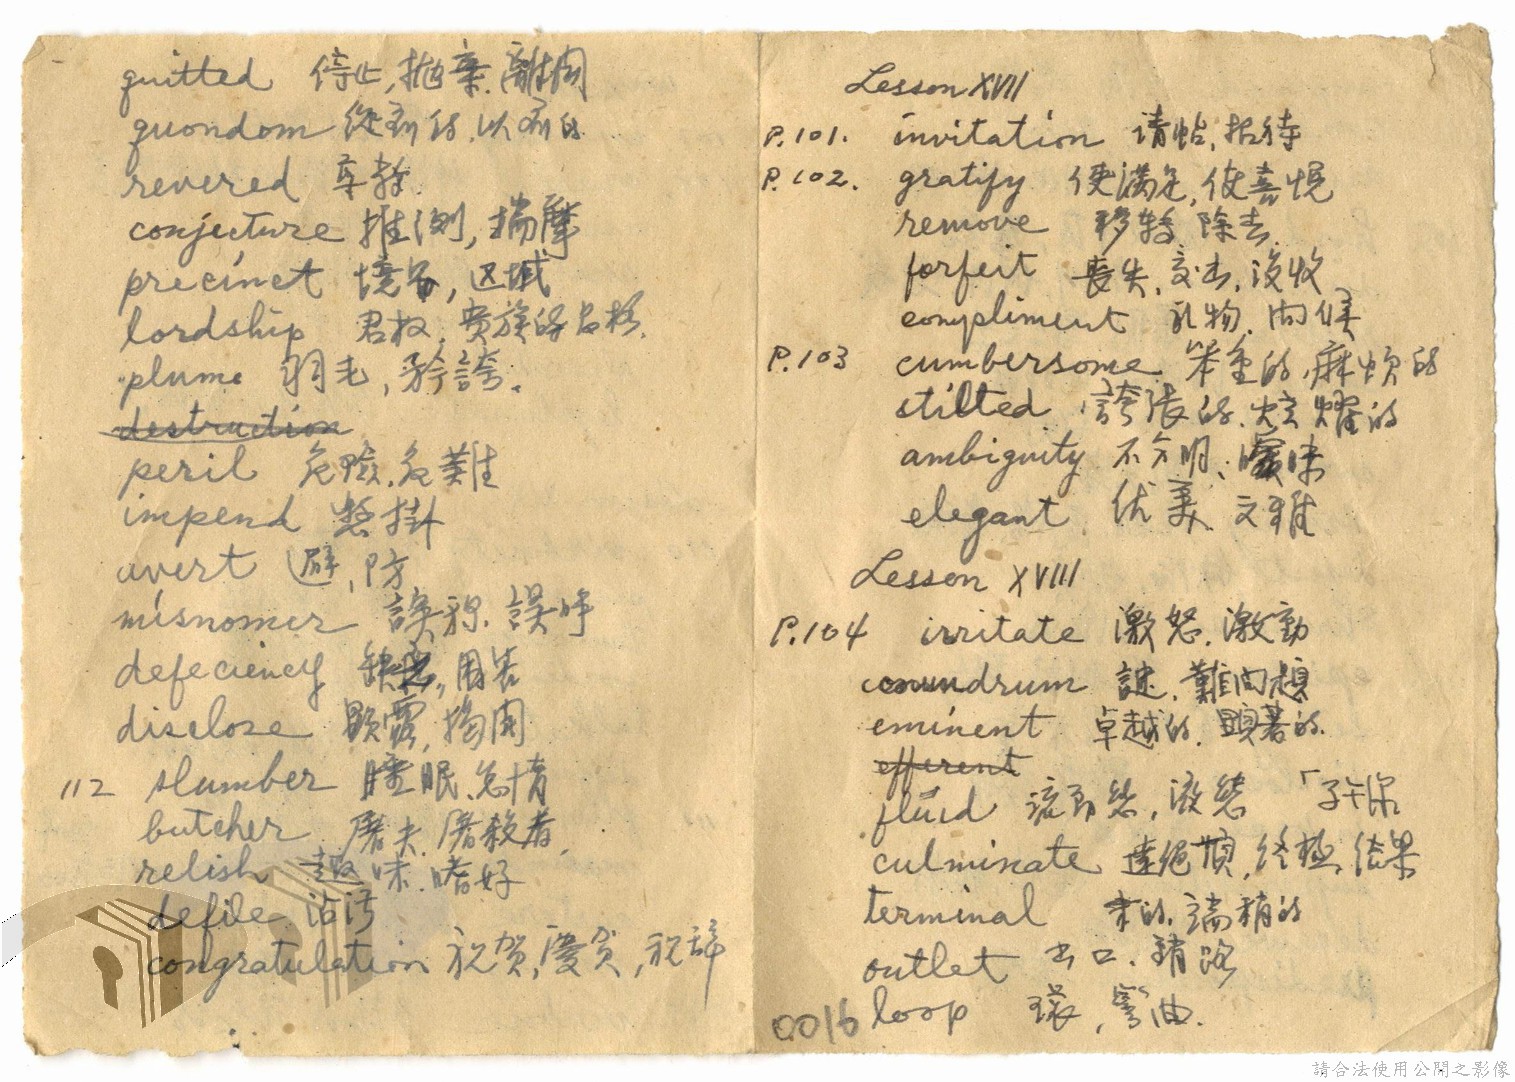 quitted 停止,抛棄.離開
quondom 從前的.以前的
revered 尊敬.
conjecture 推測,揣摩
precinct 境界,区域
lordship 君权.貴族的品格.
plume 羽毛,矜誇.
destruction
peril 危險.危難
impend 懸掛
avert 避,防
misnomer 誤称.誤呼
defeciency 缺乏,困苦
disclose 顯露,揭開
112 slumber 睡眠.怠惰
butcher 屠夫.屠殺者,
relish 趣味.嗜好
defile 沾污
congratulation 祝贺,慶贺,祝辞
Lesson XVII
P.101. invitation 请帖,招待
P.102. gratify 使滿足,使喜悅
remove 移轉 除去.
forfeit 喪失.交出,没收
compliment 礼物.问候
P.103 cumbersome 笨重的,麻烦的
stilted 誇張的.炫耀的
ambiguity 不分明.曖昧
elegant 优美 文雅
Lesson XVIII
P.104 irritate 激怒.激動
conundrum 謎.難问題
eminent 卓越的.顯著的.
efferent
fluid 流動態,液態
culminate 達絕頂,終極,结果
terminal 末的.端稍的
outlet 出口.銷路
loop 環,彎曲.
0016
請合法使用公開之影像